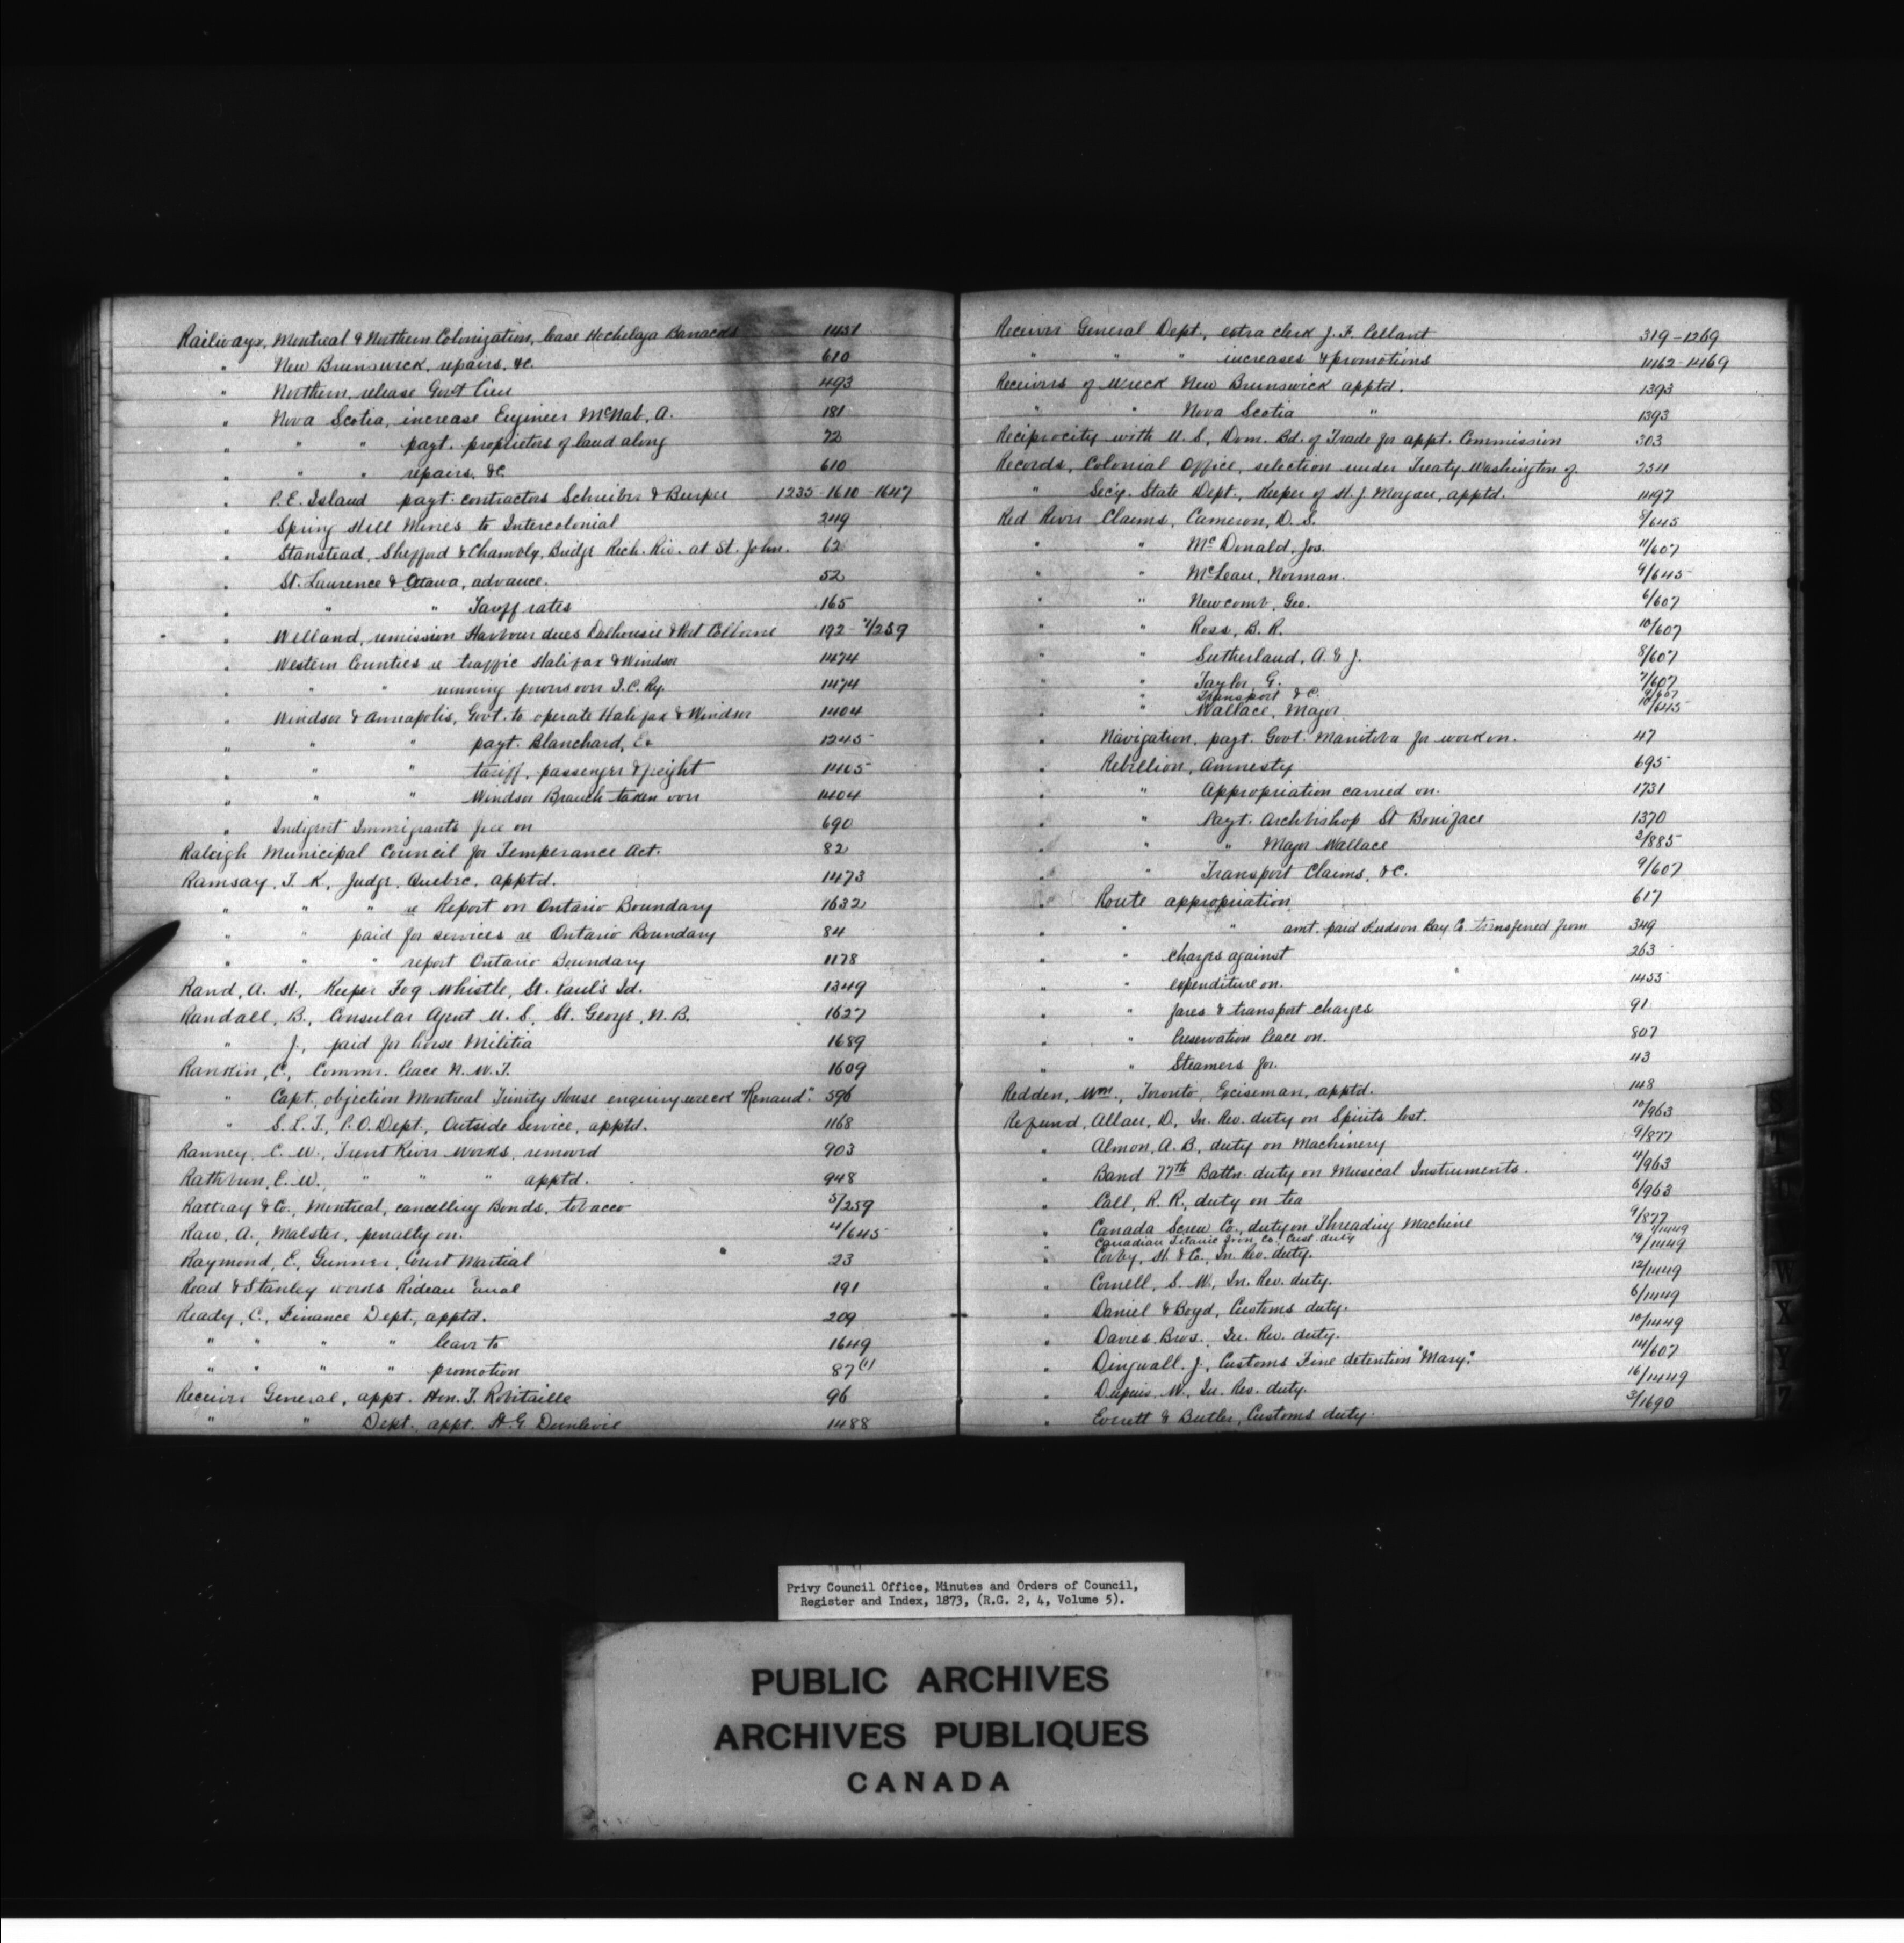 Railways, Montreal & Northern Colonization, lease Hochelaga Barracks 1431
" New Brunswick, repairs, &c. 610
" Northern, release Govt lien 493
" Nova Scotia, increase Engineer McNab, A. 181
" " " payt. proprietors of land along 72
" " " repairs, &c 610
" P.E. Island payt. contractors Schreiber & Burpee 1235-1610-1647
" Spring Hill Mines to Intercolonial 249
" Stanstead, Shefford & Chambly, Bridge Rich. Riv. at St. John. 62
" St. Laurence & Ottawa, advance. 52
" " " Tariff rates 165
" Welland, remission Harbour dues Dalhousie & Port Colborne 192-7/259
" Western Counties re traffic Halifax & Windsor 1474
" " " running powers over I.C. Ry. 1474
" Windsor & Annapolis, Govt. to operate Halifax & Windsor 1404
" " " payt. Blanchard, E. 1245
" " " tariff, passenger & freight 1405
" " " Windsor Branch taken over 1404
" Indigent Immigrants free on 690
Raleigh Municipal Council for Temperance Act. 82
Ramsay, T. K., Judge, Quebec, apptd. 1473
" " " re Report on Ontario Boundary 1632
" " paid for services re Ontario Boundary 84
" " " report Ontario Boundary 1178
Rand, A. H., Keeper Fog Whistle, St. Paul's Id. 1349
Randall, B., Consular Agent U. S., St. George, N. B. 1627
" J., paid for horse Militia 1689
Rankin, C., Commr. Peace N. W. T. 1609
" Capt, objection Montreal Trinity House enquiry wreck "Renaud". 596
" S. L. T., P.O. Dept., Outside Service, apptd. 1168
Ranney, C. W., Trent River Works, removed 903
Rathbun, E. W., " " " apptd. 948
Rattray & Co., Montreal, cancelling Bonds, tobacco 5/259
Raw, A., Malster, penalty on. 4/645
Raymond, E., Gunner, Court Martial 23
Read & Stanley works Rideau Canal 191
Ready, C., Finance Dept., apptd. 209
" " " " leave to 1649
" " " " promotion 87(1)
Receiver General, appt. Hon. T. Robitaille 96
" " Dept. appt. A. G. Dunlevie 1488
Receiver General Dept, extra clerk J. F. Pellant 319-1269
" " " increases & promotions 1462-1469
Receivers of Wreck New Brunswick apptd. 1393
" " Nova Scotia " 1393
Reciprocity with U. S., Dom. Bd. of Trade for appt. Commission 303
Records, Colonial Office, selection under Treaty Washington of 254
" Secy. State Dept., Keeper of H. J. Morgan, apptd. 1497
Red River Claims, Cameron, D. S. 8/645
" " McDonald, Jos. 11/607
" " McLean, Norman. 9/645
" " Newcomb, Geo. 6/607
" " Ross, B. R. 10/607
" " Sutherland, A. & J. 8/607
" " Taylor G. 7/607
" " Transport &c. 9/607
" " Wallace, Major 10/645
" Navigation, payt. Govt. Manitoba for work on. 47
" Rebellion, Amnesty 695
" " Appropriation carried on. 1731
" " Payt. Archbishop St Boniface 1370
" " " Major Wallace 2/885
" " Transport Claims, &c. 9/607
" Route appropriation 617
" " " amt. paid Hudson Bay Co. transferred from 349
" " charges against 263
" " expenditure on. 1455
" " fares & transport charges 91
" " Preservation Peace on. 807
" " Steamers for. 43
Redden, Wm., Toronto, Exciseman, apptd. 148
Refund, Allan, D., In. Rev. duty on Spirits lost. 10/963
" Almon, A. B., duty on Machinery 9/877
" Band 77th Battn. duty on Musical Instruments. 4/963
" Call, R. R., duty on tea 6/963
" Canada Screw Co., duty on Threading Machine 9/877
" Canadian Titanic Iron Co., Cust. duty 1/1449
" Corby, H. & Co., In. Rev. duty. 14/1449
" Cornell, S. W., In. Rev. duty. 12/1449
" Daniel & Boyd, Customs duty. 6/1449
" Davies Bros., In. Rev. duty. 10/1449
" Dingwall, J., Customs Fine detention "Mary". 14/607
" Dupuis, W., In. Rev. duty. 16/1449
" Everett & Butler, Customs duty. 3/1690
W
X
Y
Z
Privy Council Office, Minutes and Orders of Council,
Register and Index, 1873, (R.G. 2, 4, Volume 5).
PUBLIC ARCHIVES
ARCHIVES PUBLIQUES
CANADA